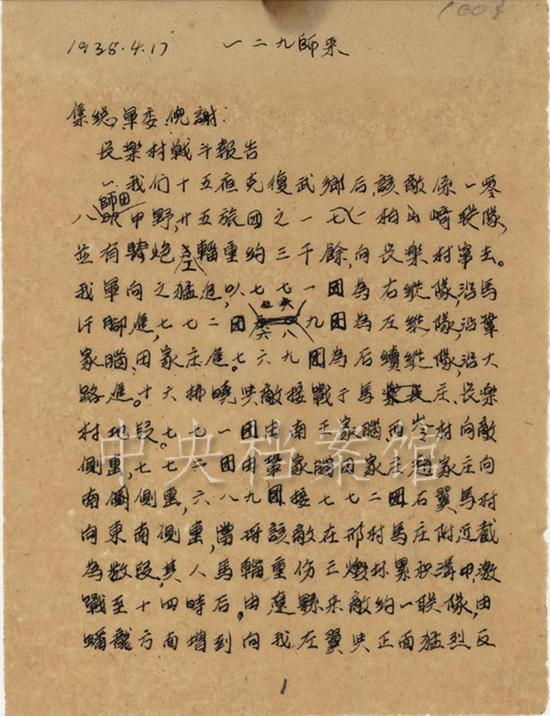 1938.4.17 一二九師來
集总,軍委,倪謝:
長樂村戰斗報告
一,我们十五夜克復武鄉后,該敵係一零
八師田甲野,廿五旅团之一一七(一柏山崎联隊,
並有騎炮工輜重約三千餘,向長樂村窜去。
我軍向之猛進,以七七一团為右縱隊,沿馬
汗腳進,七七二团六八九团為左縱隊,沿鞏
家腦、田家庄進。七六九团為后續縱隊,沿大
路進。十六拂曉與敵接戰于馬庄、長樂
村地段。七七一团由南王家腦西岺村向敵
側重,七七二团由鞏家腦田家庄楊家庄向
南側側重,六八九团接七七二团右翼馬村
向東南側重,當將該敵在邢村馬庄附近截
為數段,其人馬輜重伤亡燬林累积溝中,激
戰至十四時后,由遼縣來敵約一联隊,由
蟠龍方面增到向我左翼與正面猛烈反
1
中央档案馆